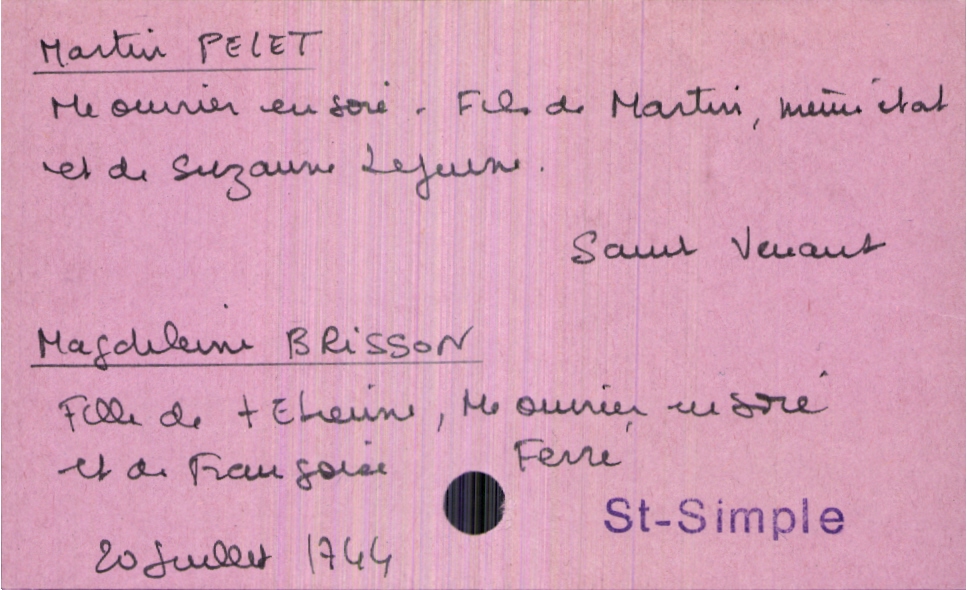 Martin PELET
Me ouvrier en soie. Fils de Martin, même état
et de Suzanne Lejeune.
Saint Venant
Magdeleine BRISSON
Fille de + Etienne, Me ouvrier en soie
et de Françoise Ferre
St-Simple
20 Juillet 1744